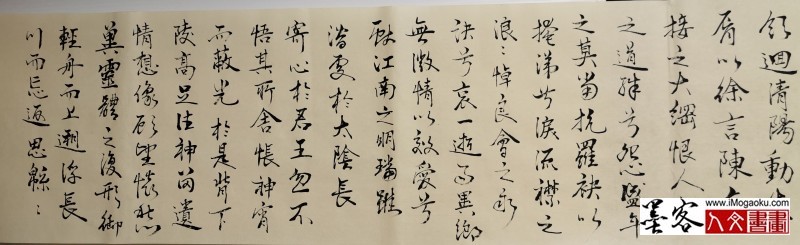 領迴清陽動
脣以徐言陳
接之大綱恨人
之道殊兮怨盛年
之莫當抗羅袂以
掩涕兮淚流襟之
浪〻悼良會之永
訣兮哀一逝而異鄉
無微情以效愛兮
獻江南之明璫雖
潛處於太陰長
寄心於君王忽不
悟其所舍悵神宵
而蔽光於是背下
陵高足往神留遺
情想像顧望懷愁
冀靈體之復形御
輕舟而上遡浮長
川而忘返思緜〻
www.iMogaoku.com
墨客人文書畫